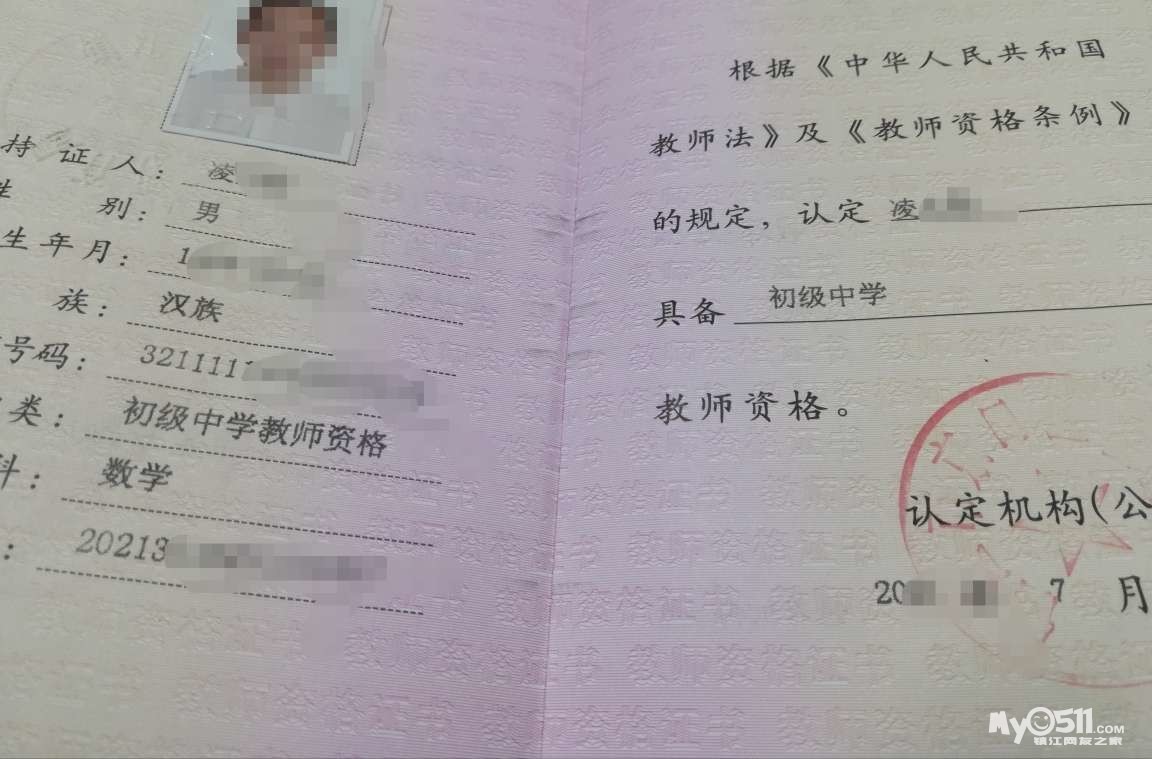 持证人：凌
性别：男
生年月：1
族：汉族
号码：3211111
类：初级中学教师资格
科：数学
：20213
根据《中华人民共和国
教师法》及《教师资格条例》
的规定，认定 凌
具备 初级中学
教师资格。
认定机构(公
20 7 月
My0511.COM
镇江网友之家